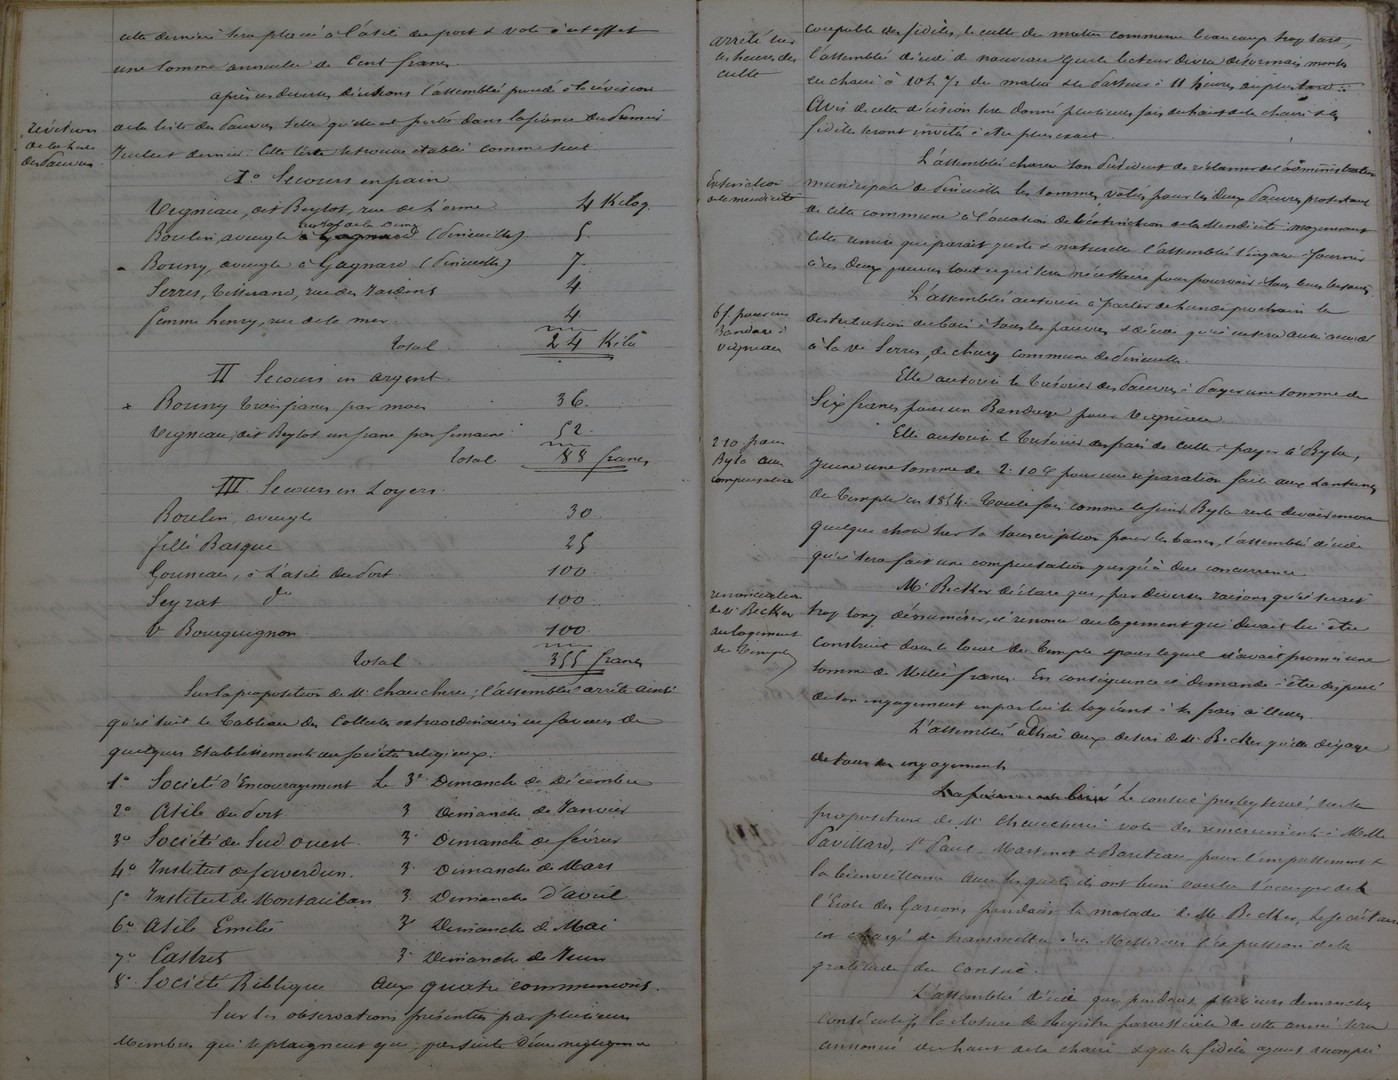 cette dernière sera placée à l'asile du port & vote à cet effet
une somme annuelle de Cent francs.
après ces diverses décisions l'assemblée procède à la révision
Révision
de la liste
des Pauvres
de la liste des Pauvres telle qu'elle est portée dans la séance du premier
Juillet dernier. Cette liste se trouve établie comme suit
I° Secours en pain
Vigniau, dit Beylot, rue de L'orme 4 Kilog.
Boulin, aveugle (Périeuille) 5
Bouny, aveugle à Gagnard (Périeuille) 7
Serres, Tisserand, rue des Jardins 4
femme henry, rue de la mer. 4
total 24 Kilo
II Secours en argent.
Bouny trois francs par mois 36.
Vigniau, dit Beylot un franc par semaine 52
total 88 francs
III. Secours en Loyers.
Boulin, aveugle 30
fille Basque 25
Gouneau, à l'asile du Port 100
Seyrat do 100
Ve Bourguignon 100
total 355 francs
Sur la proposition de Mr chaucherie, l'assemblée arrête ainsi
qu'il suit le Tableau des Collectes extraordinaires en faveur de
quelques Etablissements ou sociétés religieux.
1° Société d'Encouragement Le 3e Dimanche de Décembre
2° Asile du Port 3 Dimanche de Janvier
3° Société du Sud ouest 3 Dimanche de février
4° Institut de Saverdun. 3 Dimanche de Mars
5° Institut de Montauban 3 Dimanche d'avril
6° Asile Emilie 3e Dimanche de Mai
7° Castres 3 Dimanche de Juin
8° Société Biblique aux quatre communions.
Sur les observations présentées par plusieurs
Membres qui se plaignent que, par suite d'une négligence
arrêté sur
les heures du
culte
coupable des fidèles, le culte du matin commence beaucoup trop tard,
l'assemblée décide de nouveau que le lecteur devra désormais monter
en chaire à 10 h 1/2 du matin & le Pasteur à 11 heures au plus tard.
Avis de cette décision sera donné plusieurs fois du haut de la chaire & les
fidèles seront invités à être plus exacts.
Extinction
de la mendicité
L'assemblée charge son Président de réclamer de l'administration
municipale de les sommes votées pour les deux Pauvres protestants
de cette commune à l'occasion de l'extinction de la Mendicité. Moyennant
cette remise qui paraît juste & naturelle l'assemblée s'engage à fournir
à ces deux pauvres tout ce qui sera nécessaire pour pourvoir à tous leurs besoins.
6 f. pour un
Bandage à
Vigniau
L'assemblée autorise à partir de lundi prochain la
distribution du bois à tous les pauvres & décide qu'il en sera aussi accordé
à la Ve Serres, de commune de
Elle autorise le Trésorier des Pauvres à Payer une somme de
Six francs pour un Bandage pour Vigniau
2.10 pour
Byla avec
compensation
Elle autorise le Trésorier des frais de culte à payer à Byla,
jeune une somme de 2.10 c pour une réparation faite aux Lanternes
du Temple en 1854. Toutefois comme le sieur Byla reste devoir encore
quelque chose sur la souscription pour les bancs, l'assemblée décide
qu'il sera fait une compensation jusqu'à due concurrence
renonciation
de Mr Becker
au logement
du Temple
Mr Becker déclare que, par diverses raisons qu'il serait
trop long d'énumérer, il renonce au logement qui devait lui être
construit dans la cour du Temple & pour lequel il avait promis une
somme de Mille francs. En conséquence il demande à être dispensé
de son engagement en par lui se logeant à ses frais ailleurs.
L'assemblée adhère aux désirs de Mr Becker qu'elle dégage
de tous ses engagements
Le conseil presbytéral, sur la
proposition de Mr Chaucherie vote des remerciements à MM
Pavillard, St Paul, Martinot & Bariteau pour l'empressement &
la bienveillance avec lesquels ils ont bien voulu s'occuper de
l'Ecole des Garçons pendant la maladie de Mr Becker. Le secrétaire
est chargé de transmettre à ces Messieurs l'expression de la
gratitude du Conseil.
L'assemblée décide que pendant plusieurs dimanches
consécutifs la clôture du Registre paroissial de cette année sera
annoncé du haut de la chaire & que les fidèles ayant accompli